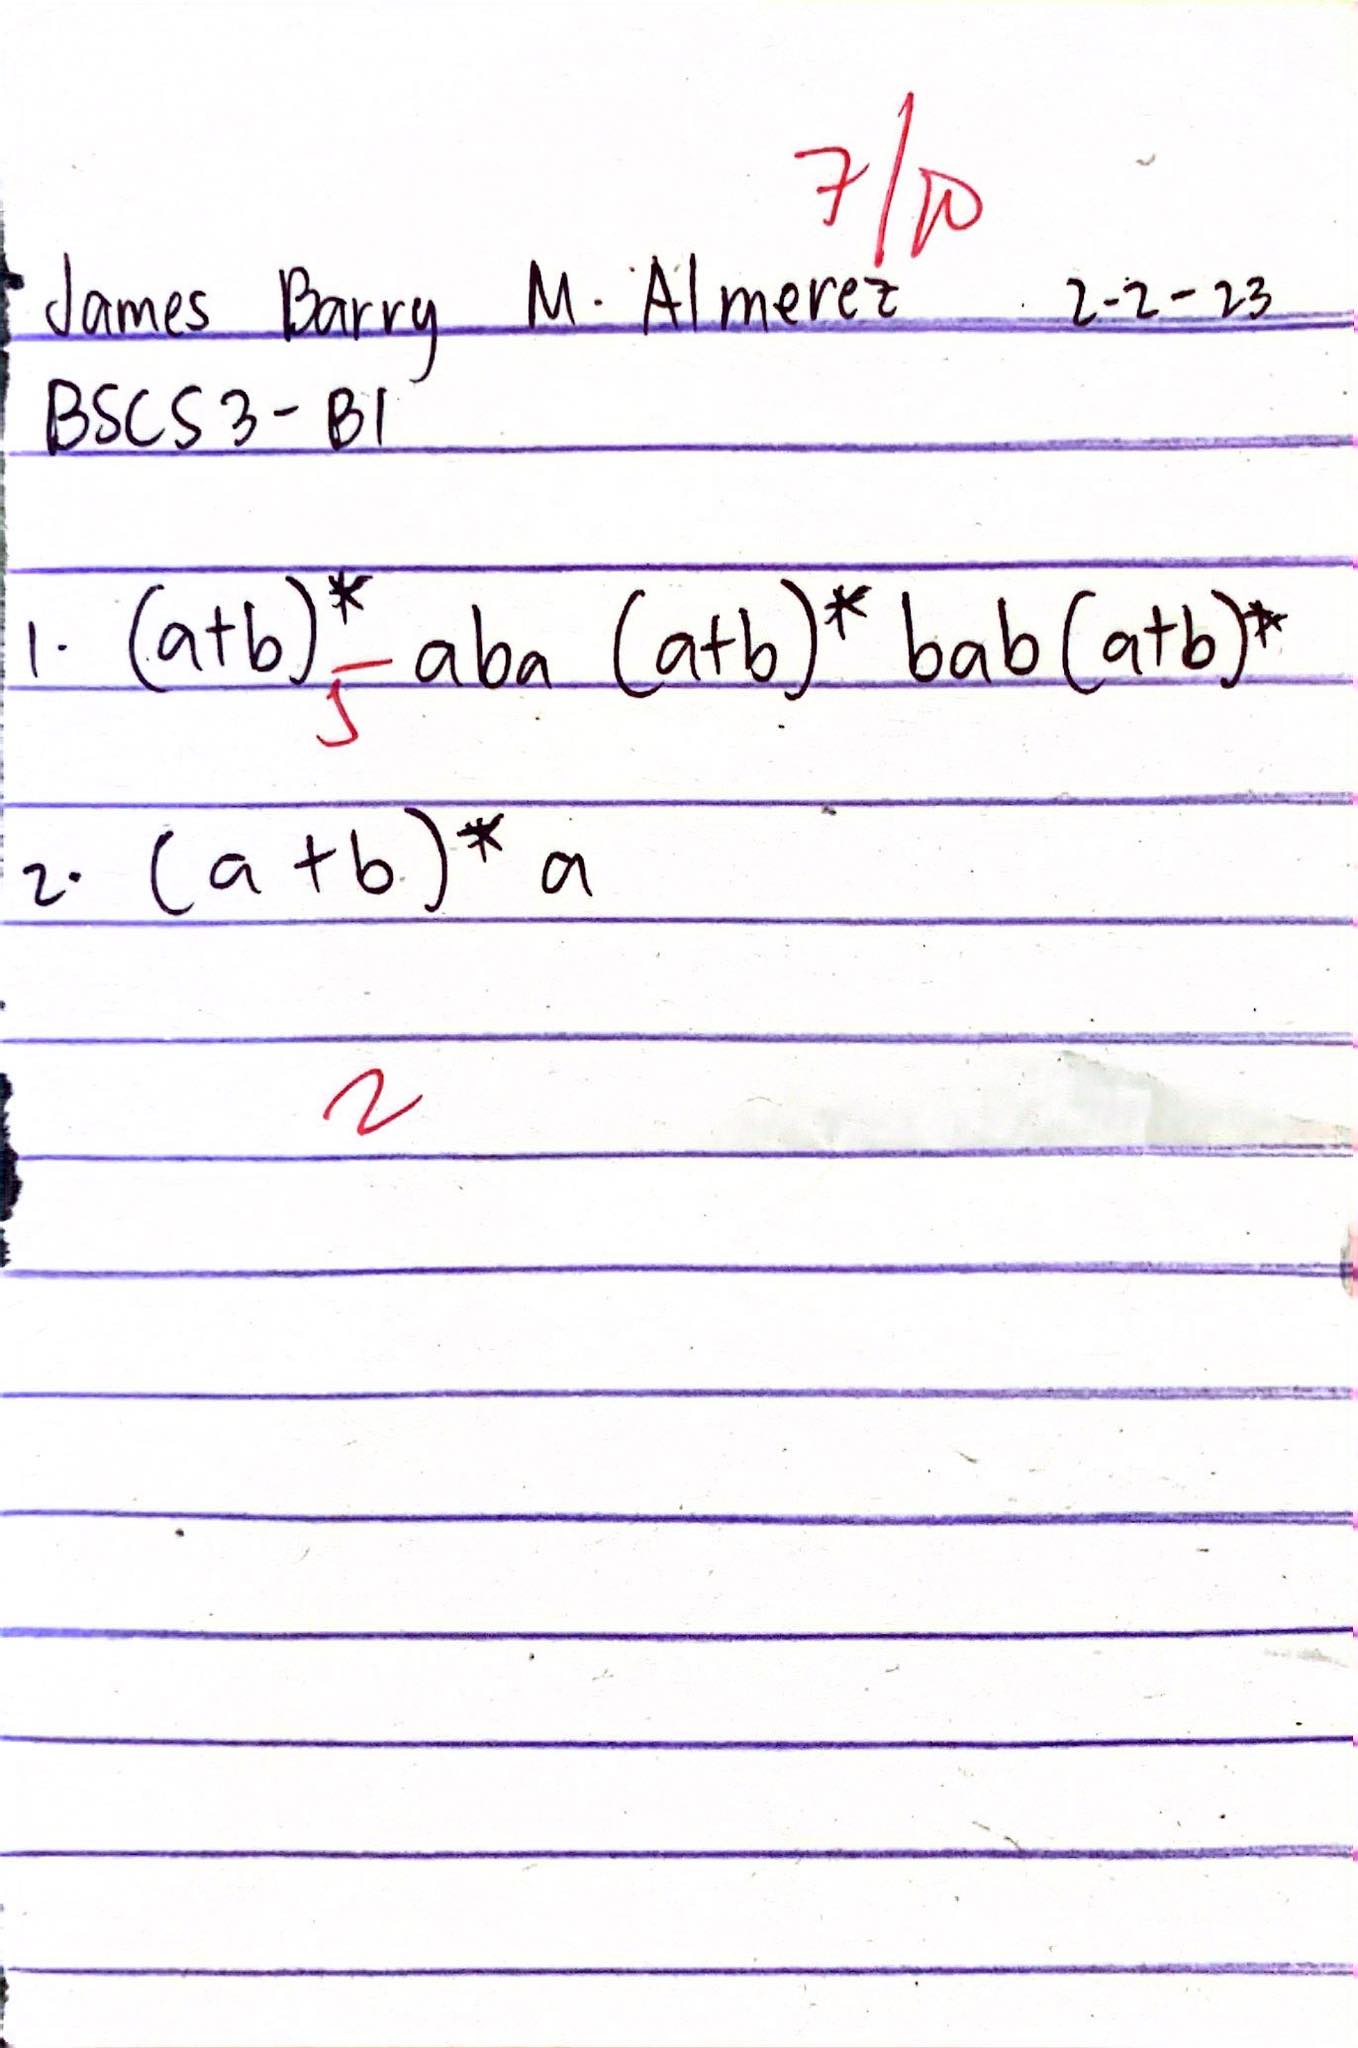 7/10
James Barry M. Almerez 2-2-23
BSCS 3 - B1
1. (a+b)* aba (a+b)* bab (a+b)*
5
2. (a+b)* a
2